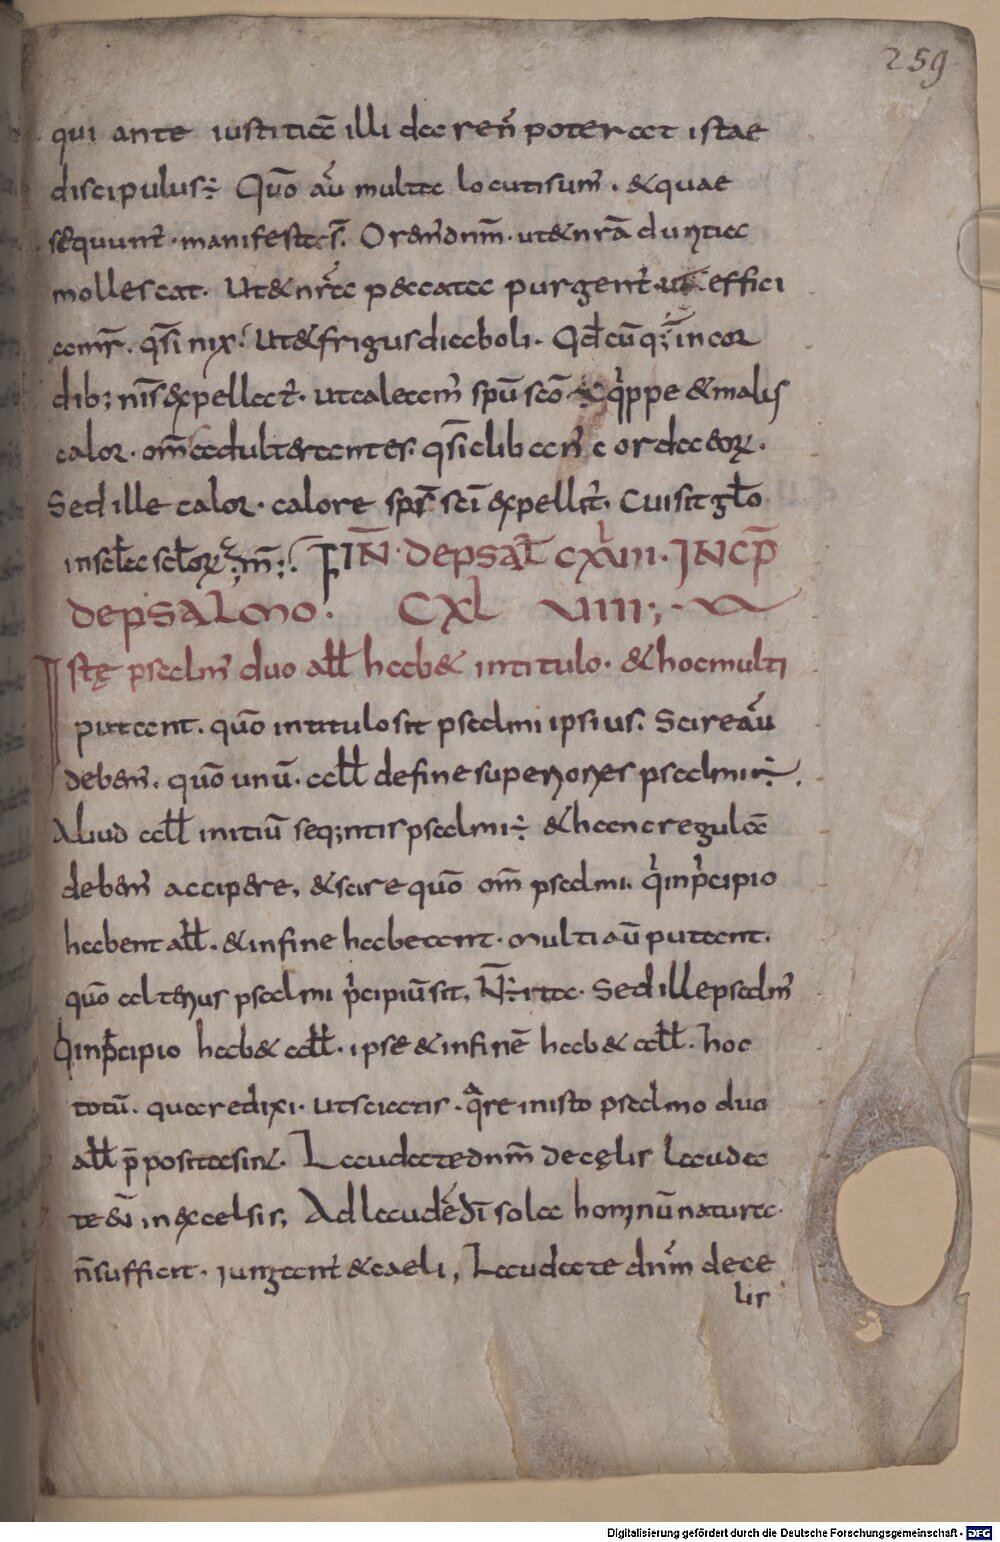 259
qui ante iustitiā illi dare n̄ poterat istae
discipulus; Quō aū multa locuti sum̄. & quae
sequunt̄. manifesta s̄. Orem̄ dnm̄. ut & nr̄a duritia
mollescat. Ut & nr̄a peccata purgent̄. ut effici
amr̄. qsi nix. Ut & frigus diaboli. Qd cūq; in cor
dib; nr̄is expellat̄. ut caleam̄ spū sc̄o quippe & malis
calor. om̄ adulterantes. qsi cliban̄ corda eoꝝ.
Sed ille calor. calore sps̄ sc̄i expellit̄. Cui sit glo
in sc̄la sc̄loꝝ. am̄; FIN̄. de psal̄ CXLVIII. INCP̄
de psalmo. CXLVIIII;
Istę psalm̄ duo all̄ hab& in titulo. & hoc multi
putant. quō in titulo sit psalmi ipsius. Scire aū
debem̄. quō unū. all̄ de fine superioris psalmi;
Aliud all̄ initiū seq;ntis psalmi; & hanc regulā
debem̄ accipere, & scire quō om̄ psalmi. qui in pricipio
habent all̄. & in fine habeant. multi aū putant.
quō alterius psalmi pricipiū sit, N̄; ita. Sed ille psalm̄
qui in pricipio hab& all̄. ipse & in fine hab& all̄. hoc
totū. quare dixi. ut sciatis. quare in isto psalmo duo
all̄ p̄posita sint. Laudate dnm̄ de cęlis lauda
te eū in excelsis, Ad laudē dī sola hominū natura
n̄ sufficit. iungant̄ & caeli, Laudate dnm̄ de ce
lis
Digitalisierung gefördert durch die Deutsche Forschungsgemeinschaft - DFG